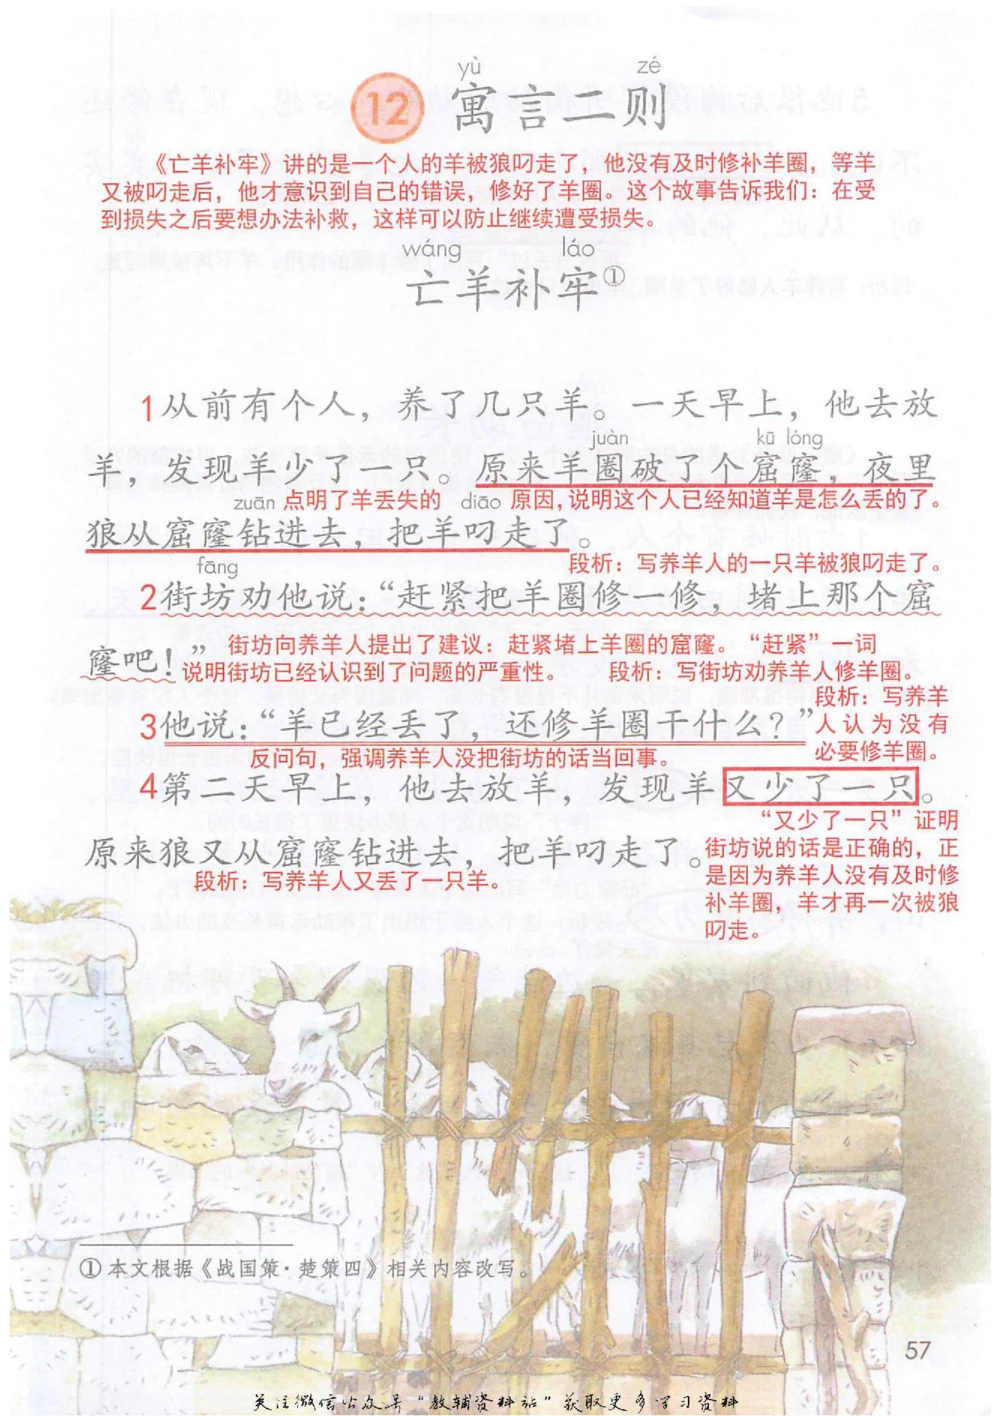 yù zé
12 寓言二则
《亡羊补牢》讲的是一个人的羊被狼叼走了，他没有及时修补羊圈，等羊
又被叼走后，他才意识到自己的错误，修好了羊圈。这个故事告诉我们：在受
到损失之后要想办法补救，这样可以防止继续遭受损失。
wáng láo
亡羊补牢①
1从前有个人，养了几只羊。一天早上，他去放
juàn kū lóng
羊，发现羊少了一只。原来羊圈破了个窟窿，夜里
zuān 点明了羊丢失的 diāo 原因，说明这个人已经知道羊是怎么丢的了。
狼从窟窿钻进去，把羊叼走了。
段析：写养羊人的一只羊被狼叼走了。
fāng
2街坊劝他说：“赶紧把羊圈修一修，堵上那个窟
街坊向养羊人提出了建议：赶紧堵上羊圈的窟窿。“赶紧”一词
窿吧！”
说明街坊已经认识到了问题的严重性。 段析：写街坊劝养羊人修羊圈。
3他说：“羊已经丢了，还修羊圈干什么？”
段析：写养羊
人认为没有
必要修羊圈。
反问句，强调养羊人没把街坊的话当回事。
4第二天早上，他去放羊，发现羊又少了一只。
原来狼又从窟窿钻进去，把羊叼走了。
“又少了一只”证明
街坊说的话是正确的，正
是因为养羊人没有及时修
补羊圈，羊才再一次被狼
叼走。
段析：写养羊人又丢了一只羊。
①本文根据《战国策·楚策四》相关内容改写。
57
关注微信公众号“教辅资料站”获取更多学习资料